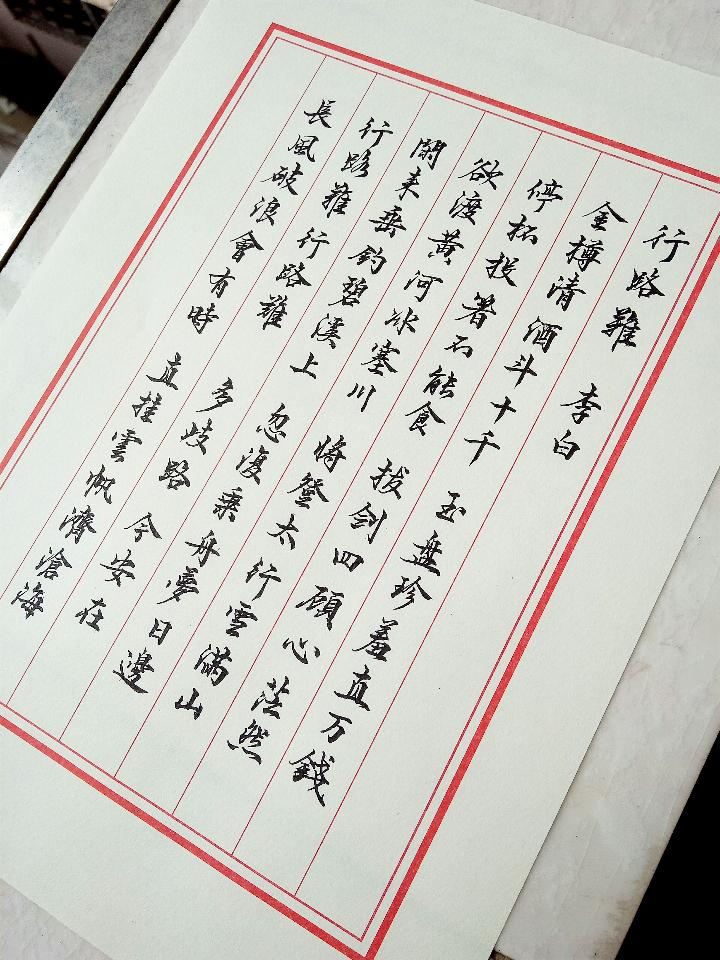 行路難 李白
金樽清酒斗十千 玉盘珍羞直万錢
停杯投箸不能食 拔剑四顧心茫然
欲渡黄河冰塞川 将登太行雲滿山
閑来垂釣碧溪上 忽復乘舟夢日邊
行路難行路難 多歧路今安在
長風破浪會有時 直挂雲帆濟滄海